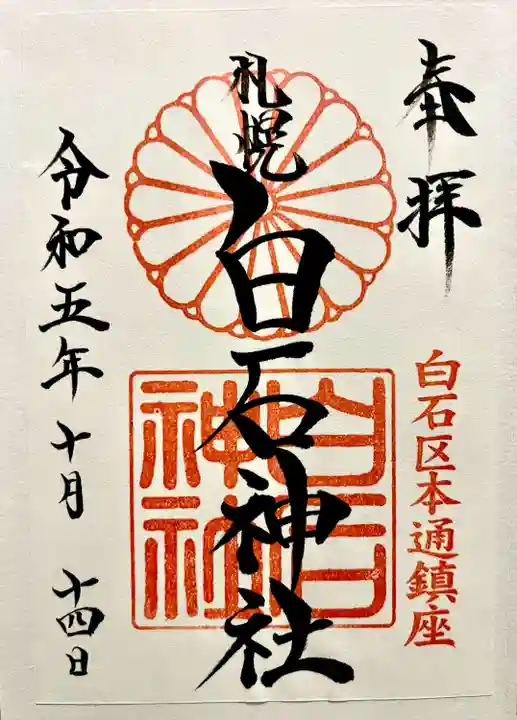 奉拝
白石区本通鎮座
札幌
白石神社
白石
神社
令和五年十月十四日